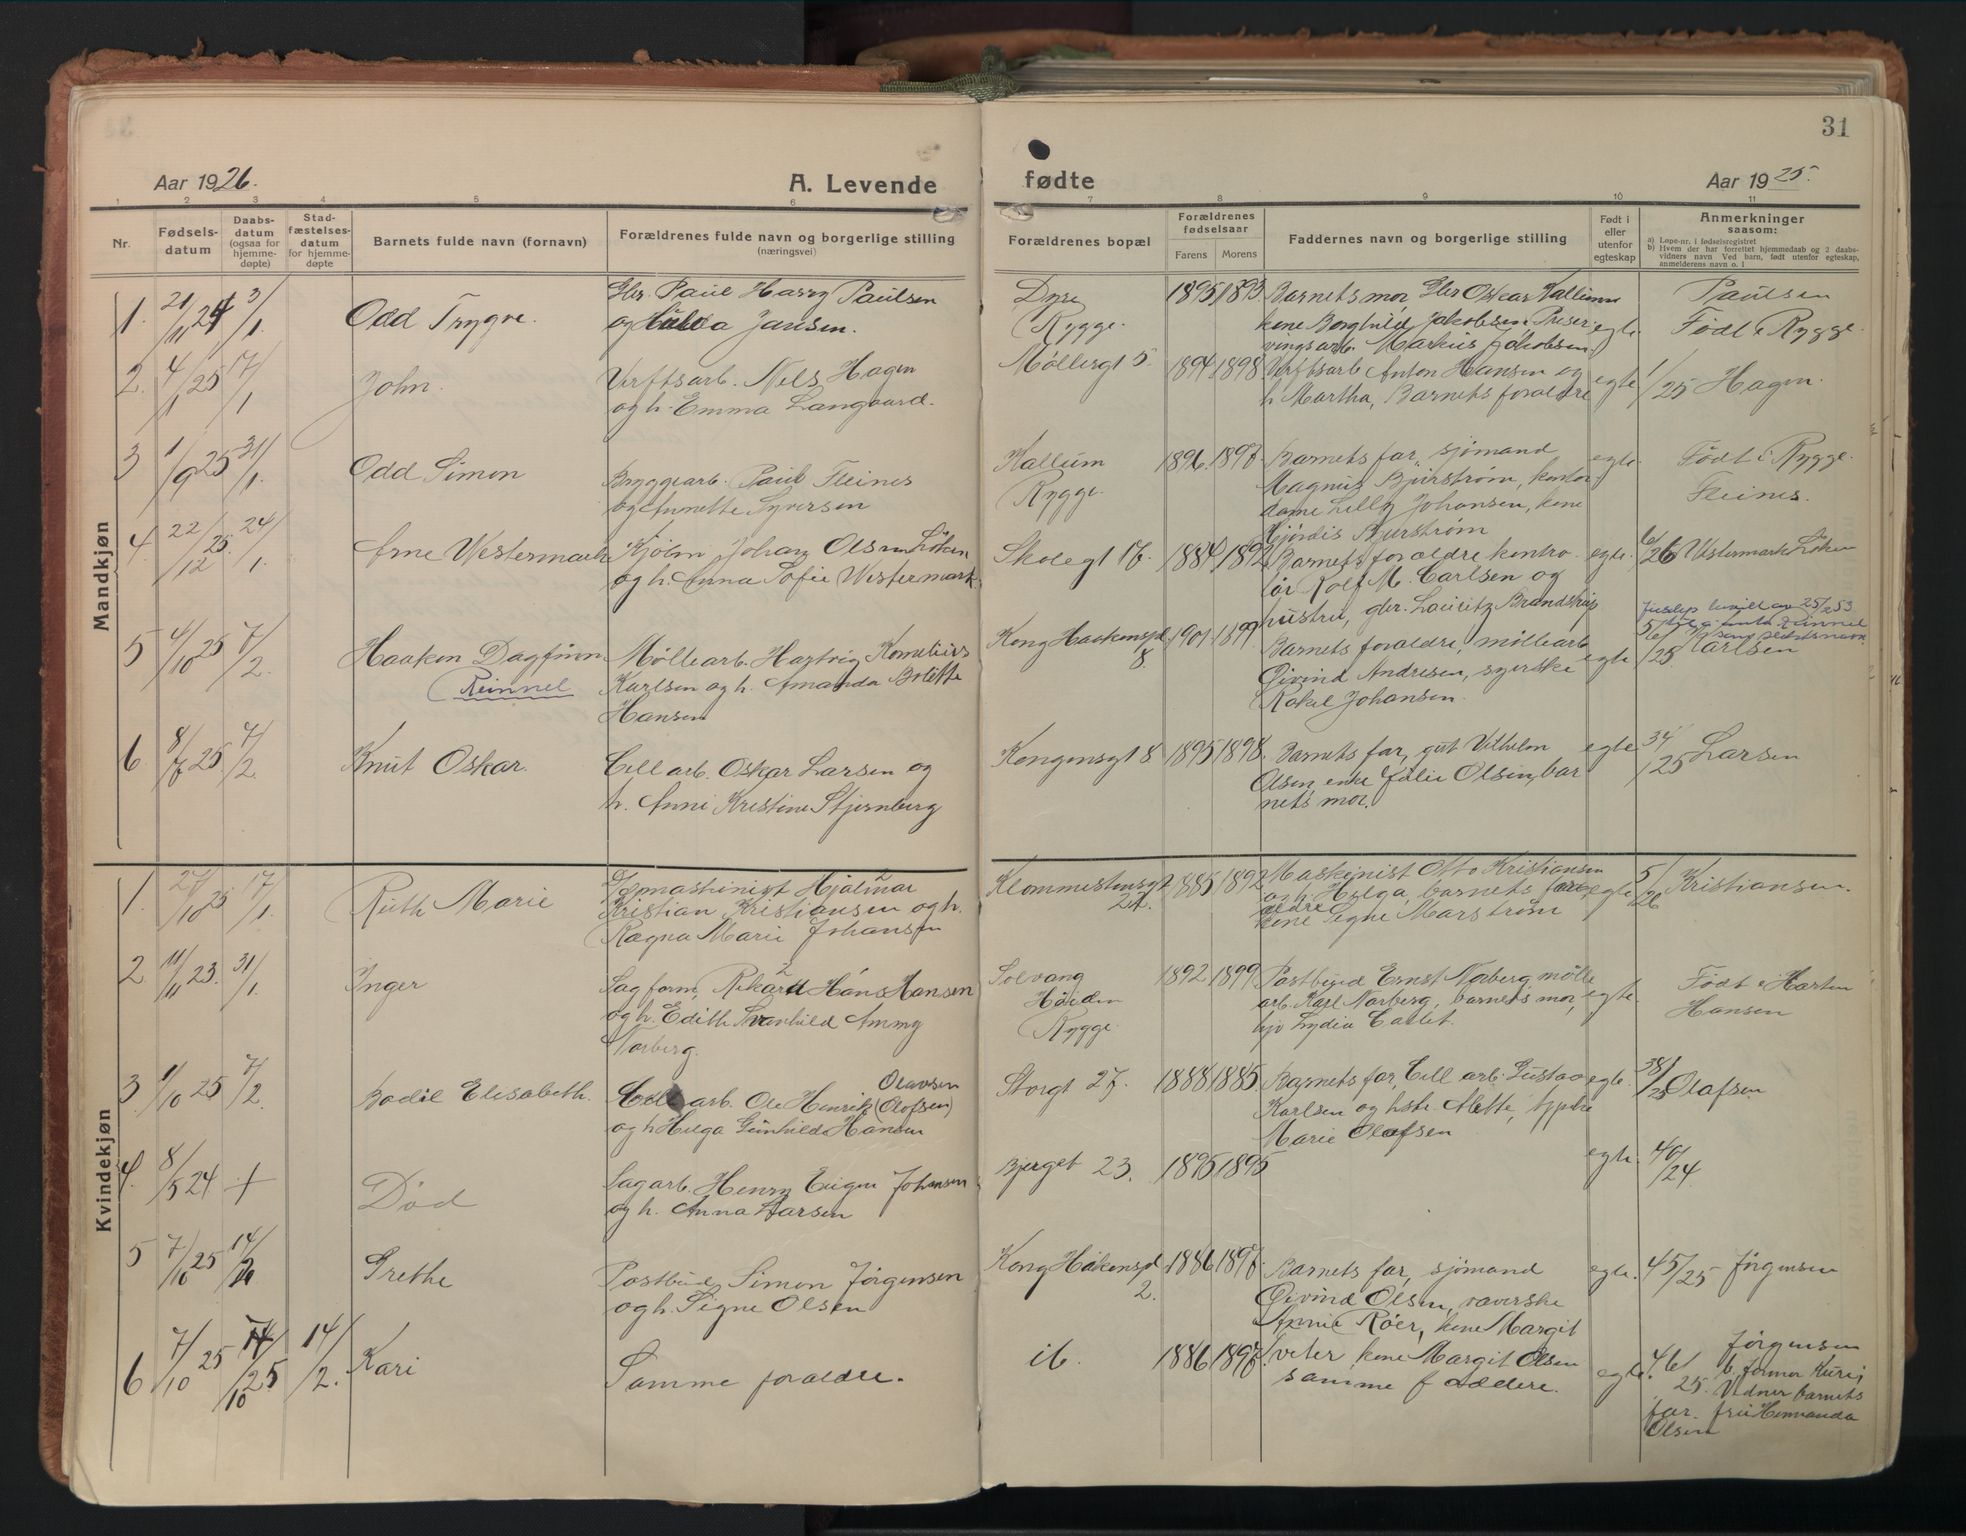 31
Aar 1926.
A. Levende
fødte
Aar 1925.
1 2 3 4 5 6 7 8 9 10 11
Nr.
Fødsels-
datum
Daabs-
datum
(ogsaa for
hjemme-
døpte)
Stad-
fæstelses-
datum
for hjemme-
døpte
Barnets fulde navn (fornavn)
Forældrenes fulde navn og borgerlige stilling
(næringsvei)
Forældrenes bopæl
Forældrenes
fødselsaar
Farens Morens
Faddernes navn og borgerlige stilling
Født i
eller
utenfor
egteskap
Anmerkninger
saasom:
a) Løpe-nr. i fødselsregistret
b) Hvem der har forrettet hjemmedaab og 2 daabs-
vidners navn Ved barn, født utenfor egteskap,
anmelderens navn o. l
Mandkjøn
1. 21/11 24 3/1 Odd Trygve.
Gbr. Paul Harry Paulsen
og Hulda Jansen.
Dyre
Rygge.
1895 1893.
Barnets mor, Gbr Oskar Kallum
Borghild Jakobsen
Markus Jakobsen
egte
Paulsen
Født i Rygge.
2. 4/1 25 17/1 John.
Verftsarb. Nels Hagen
og h. Emma Langaard.
Møllergt 5.
1894 1898.
Verftsarb Anton Hansen og
h Martha, Barnets foraldre
egte
1/25 Hagen.
3 1/9 25 31/1 Odd Simon
Bryggearb. Paul Fleines
og Annette Syversen
Kallum
Rygge.
1896. 1897.
Barnets far, sjømand
Magnus Bjürstrøm, kontor
dame Lilly Johansen, kene
Hjørdis Bjurstrøm
egte.
Født i Rygge.
Fleines.
4. 22/12 25. 24/1 Arne Westermark
Johan Olsen Løken
og h. Anna Sofie Westermark.
Skolegt 16.
1884 1892
Barnets foraldre kontro-
lør Rolf M. Carlsen og
hustru, gbr. Lauritz Brandstrup
egte.
6/26 Westermark Løken
5 4/10 25 7/2 Haakon Dagfinn
Reinnel
Møllearb. Hartvig Kornelius
Karlsen og h. Amanda Bolette
Hansen
Kong Haakonspl
8.
1901 1899
Barnets foraldre, møllearb
Øivind Andresen, syerske
Rakel Johansen.
egte
25/2 53
Karlsen
6. 8/6 25. 7/2. Knut Oskar.
Cell arb. Oskar Larsen og
h. Anni Kristine Stjernberg
Kongensgt 8
1895 1898.
Barnets far, gut Vilhelm
Olsen, enke Julie Olsen, bar
nets mor.
egte.
34/25 Larsen
Kvindekjøn
1. 27/10 25 17/1. Ruth Marie
Hjalmar
Kristian Kristiansen og h.
Ragna Marie Johansen
Klommestensgt
1885 1892
Maskinist Otto Kristiansen
og h. Helga, barnets for
ældre
kene Signe Marstrøm
egte
5/26 Kristiansen.
2. 11/11 23. 31/1. Inger
Sag form, Rikard Hans Hansen
og h. Edith Svanhild Ammy
Norberg.
Solvang
Høiden
Rygge.
1892 1899
Postbud Ernst Norberg, mølle
arb. Karl Norberg, barnets mor,
Lydia
egte.
Født i
Hansen
3. 1/10 25 7/2. Bodil Elisabeth.
Cell arb. Ole Henrik (Olofsen)
Olavsen
og h Helga Gunhilda Hansen
Storgt 27.
1888 1885.
Barnets far, Cell arb. Gustav
Karlsen og hstr. Alette,
Marie Olafsen
egte.
38/25 Olafsen
4. 8/5 24 + Død
Sagarb. Henry Eugen Johansen
og h. Anna Larsen
Bjerget 23.
1895 1895
egte.
40/24
5 7/10 25 14/2 Grethe
Postbud Simon Jørgensen
og h. Signe Olsen
Kong Håkonspl
2.
1886 1897.
Barnets far, sjømand
Øivind Olsen, væverske
Annie Røer, kene Margit
egte.
45/25 Jørgensen
6 7/10 25 14/2. Kari
Samme foraldre.
ib.
1886 1897
Margit Olsen
samme faddere.
egte.
46/25. Jørgensen
Vidner barnets
far. fru Hermanda
Olsen